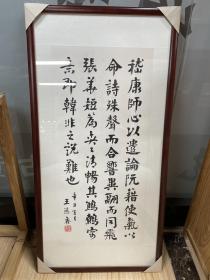 嵇康師心以遣論阮籍使氣以
命詩殊聲而合響異翮而同飛
張華短篇奕々清暢其鷦鷯寓
意即韓非之說難也
王